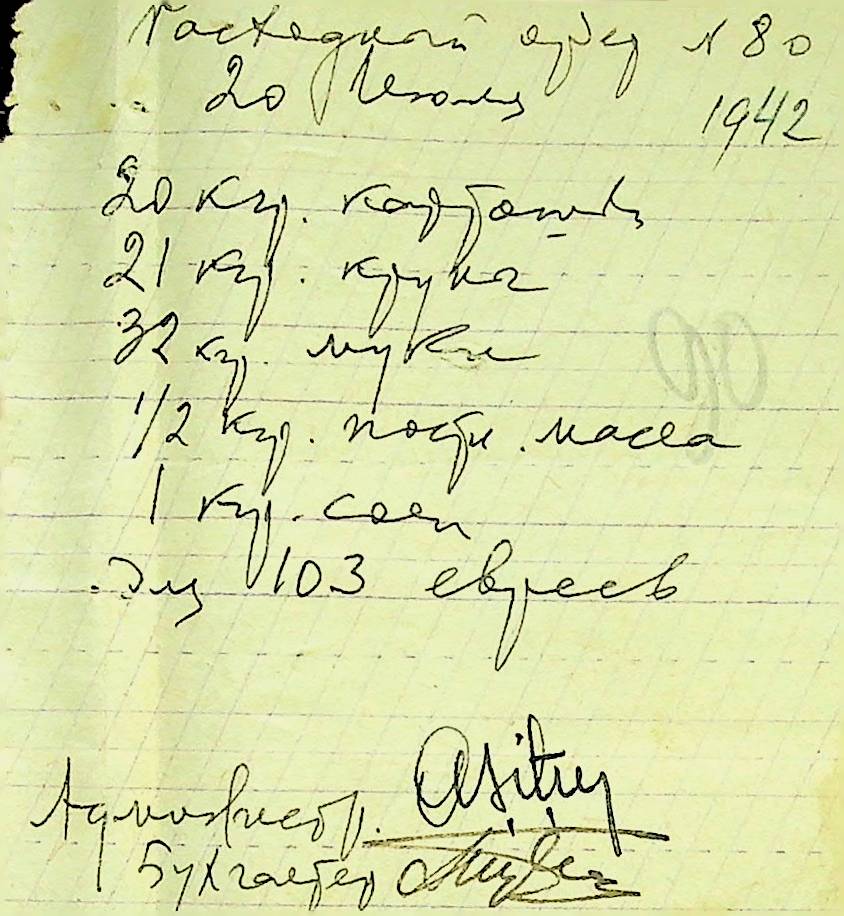 Расходный ордер N 80
20 Июля
1942
20 кгр. картошки
21 кгр. крупа
32 кгр. муки
1/2 кгр. постн. масла
1 кгр. соли
Для 103 евреев
90
Администр.
Бухгалтер